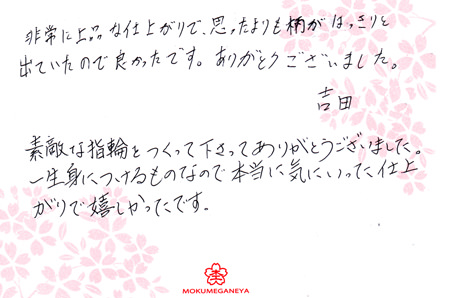 非常に上品な仕上がりで、思ったよりも柄がはっきりと
出ていたので良かったです。ありがとうございました。
吉田
素敵な指輪をつくって下さってありがとうございました。
一生身につけるものなので本当に気にいった仕上
がりで嬉しかったです。
MOKUMEGANEYA